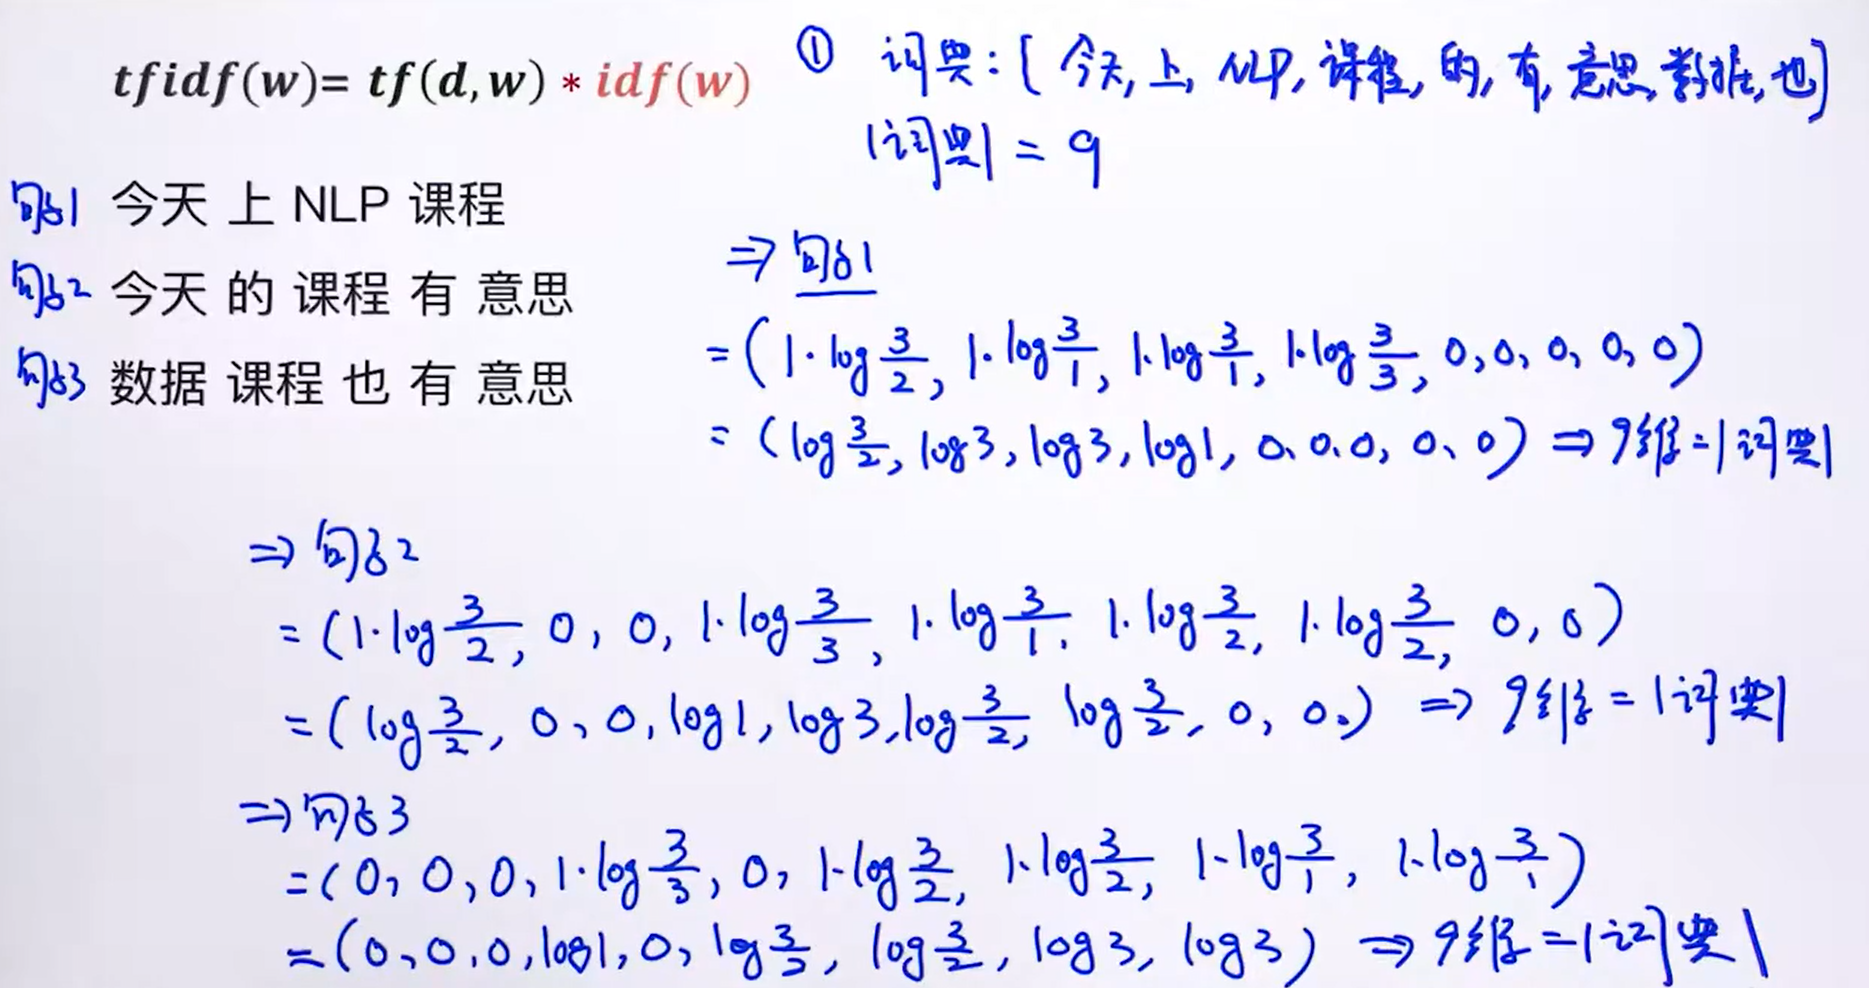 tfidf(w)= tf(d,w) * idf(w)
① 词典:[今天, 上, NLP, 课程, 的, 有, 意思, 数据, 也]
|词典| = 9
句子1 今天 上 NLP 课程
句子2 今天 的 课程 有 意思
句子3 数据 课程 也 有 意思
⇒ 句子1
= (1·log 3/2, 1·log 3/1, 1·log 3/1, 1·log 3/3, 0, 0, 0, 0, 0)
= (log 3/2, log3, log3, log1, 0, 0, 0, 0, 0) ⇒ 9维=|词典|
⇒ 句子2
= (1·log 3/2, 0, 0, 1·log 3/3, 1·log 3/1, 1·log 3/2, 1·log 3/2, 0, 0)
= (log 3/2, 0, 0, log1, log3, log 3/2, log 3/2, 0, 0.) ⇒ 9维=|词典|
⇒ 句子3
= (0, 0, 0, 1·log 3/3, 0, 1·log 3/2, 1·log 3/2, 1·log 3/1, 1·log 3/1)
= (0, 0, 0, log1, 0, log 3/2, log 3/2, log3, log3) ⇒ 9维=|词典|